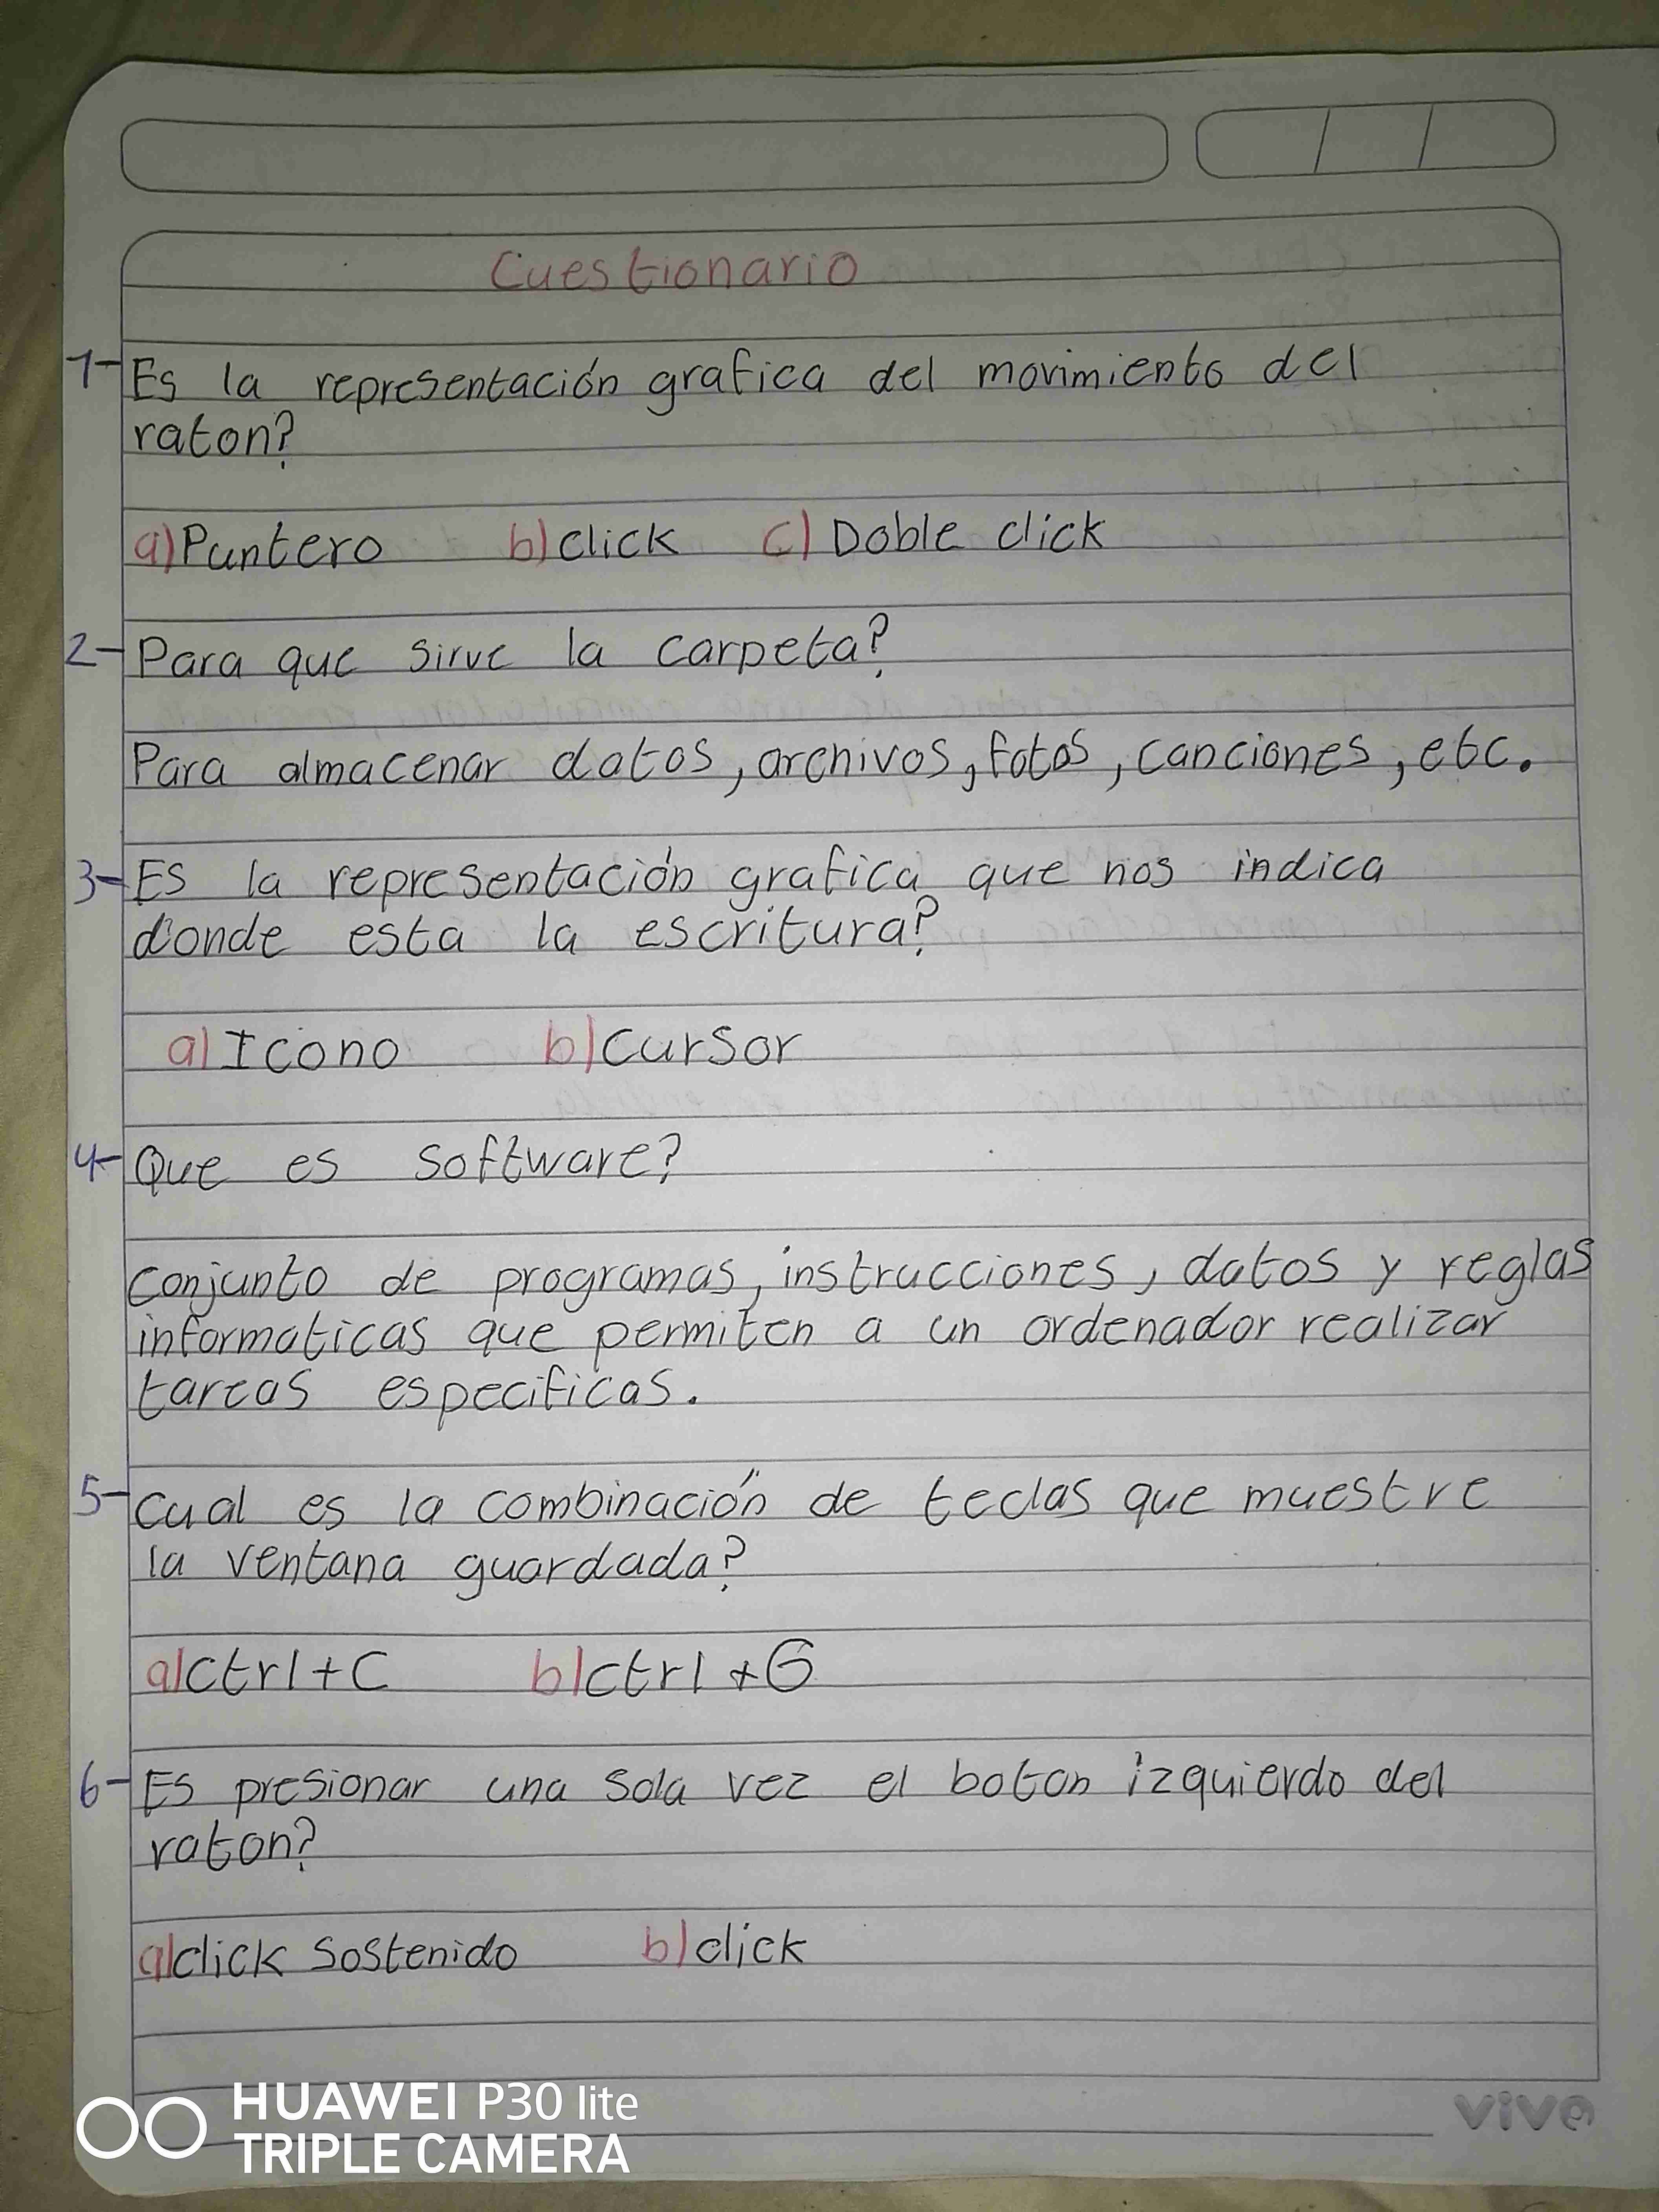 Cuestionario
1- Es la representación grafica del movimiento del
raton?
a) Puntero b) click c) Doble click
2- Para que sirve la carpeta?
Para almacenar datos, archivos, fotos, canciones, etc.
3- Es la representación grafica que nos indica
donde esta la escritura?
a) Icono b) cursor
4- Que es software?
conjunto de programas, instrucciones, datos y reglas
informaticas que permiten a un ordenador realizar
tareas especificas.
5- Cual es la combinación de teclas que muestre
la ventana guardada?
a) ctrl+C b) ctrl+G
6- Es presionar una sola vez el boton izquierdo del
raton?
a) click sostenido b) click
HUAWEI P30 lite
TRIPLE CAMERA
vive